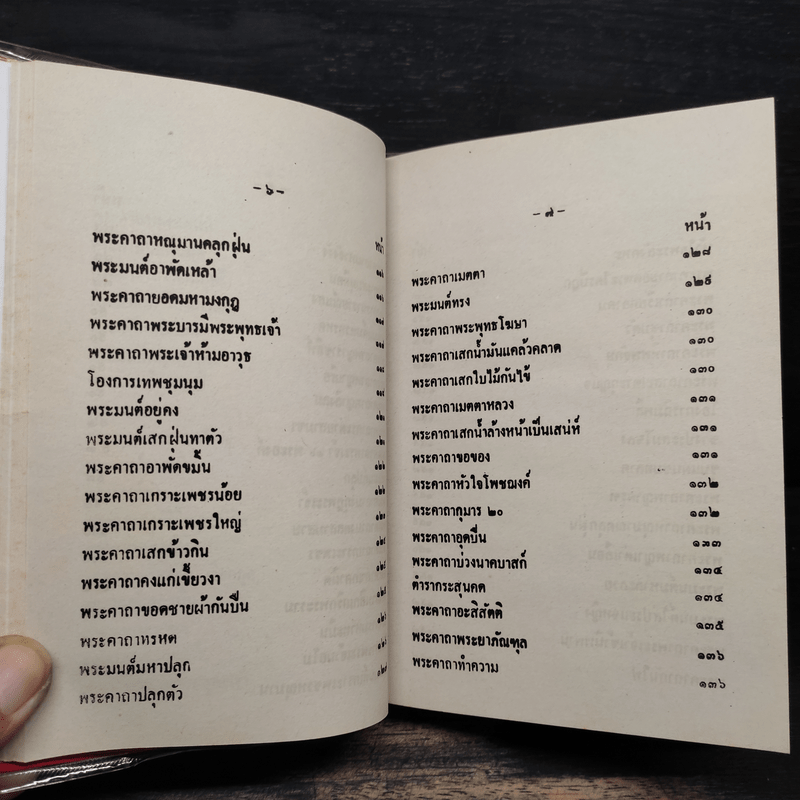 -๖-
หน้า
พระคาถาหณุมานคลุกฝุ่น
พระมนต์อาพัดเหล้า
พระคาถายอดมหามงกุฎ
พระคาถาพระบารมีพระพุทธเจ้า
พระคาถาพระเจ้าห้ามอาวุธ
โองการเทพชุมนุม
พระมนต์อยู่คง
พระมนต์เสกฝุ่นทาตัว
พระคาถาอาพัดขมั้น
พระคาถาเกราะเพชรน้อย
พระคาถาเกราะเพชรใหญ่
พระคาถาเสกข้าวกิน
พระคาถาคงแก่เขี้ยวงา
พระคาถาขอดชายผ้ากันปืน
พระคาถาทรหด
พระมนต์มหาปลุก
พระคาถาปลุกตัว
-๗-
หน้า
พระคาถาเมตตา ๑๒๘
พระมนต์ทรง ๑๒๙
พระคาถาพระพุทธโฆษา ๑๓๐
พระคาถาเสกน้ำมันแคล้วคลาด ๑๓๐
พระคาถาเสกใบไม้กันไข้ ๑๓๐
พระคาถาเมตตาหลวง ๑๓๑
พระคาถาเสกน้ำล้างหน้าเป็นเสน่ห์ ๑๓๑
พระคาถาขอของ ๑๓๑
พระคาถาหัวใจโพชฌงค์ ๑๓๒
พระคาถากุมาร ๒๐ ๑๓๒
พระคาถาอุดปืน ๑๓๓
พระคาถาบ่วงนาคบาสก์ ๑๓๔
ตำรากระสุนคด ๑๓๔
พระคาถาอะสิสัตติ ๑๓๕
พระคาถาพระยาภัณฑุล ๑๓๖
พระคาถาทำความ ๑๓๖